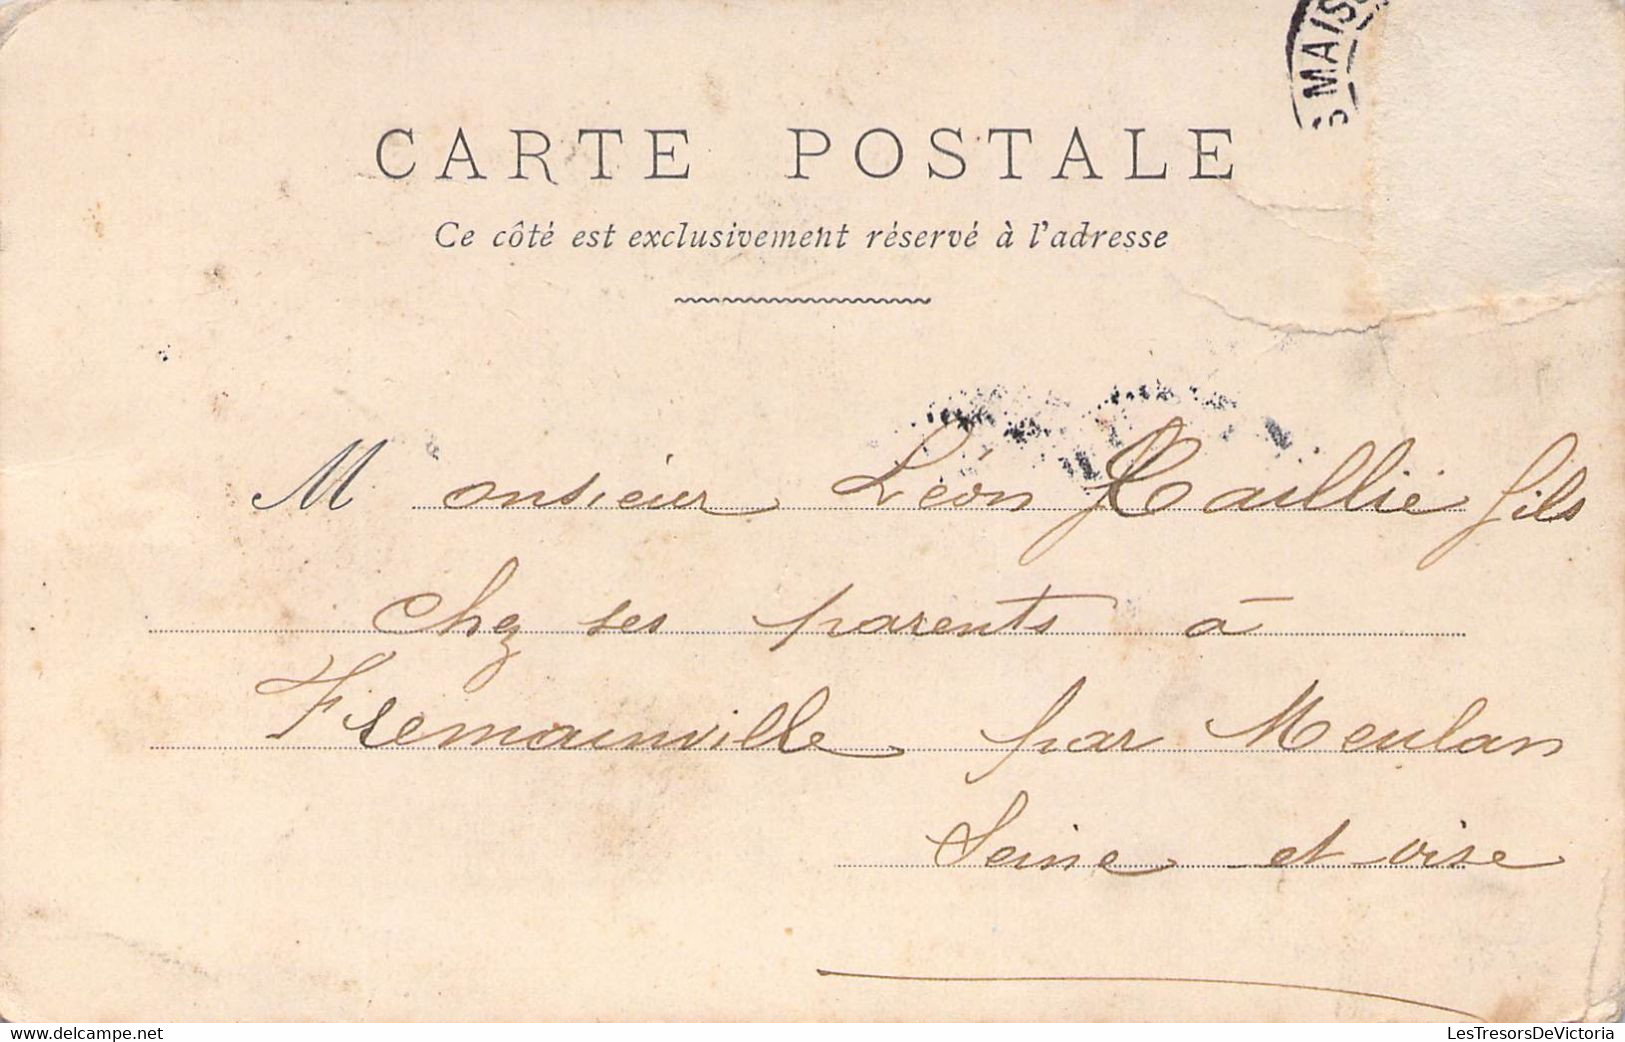 MAIS
CARTE POSTALE
Ce côté est exclusivement réservé à l'adresse
Monsieur Léon Caillié fils
chez ses parents à
Fremainville par Meulan
Seine et oise
LesTresorsDeVictoria
www.delcampe.net